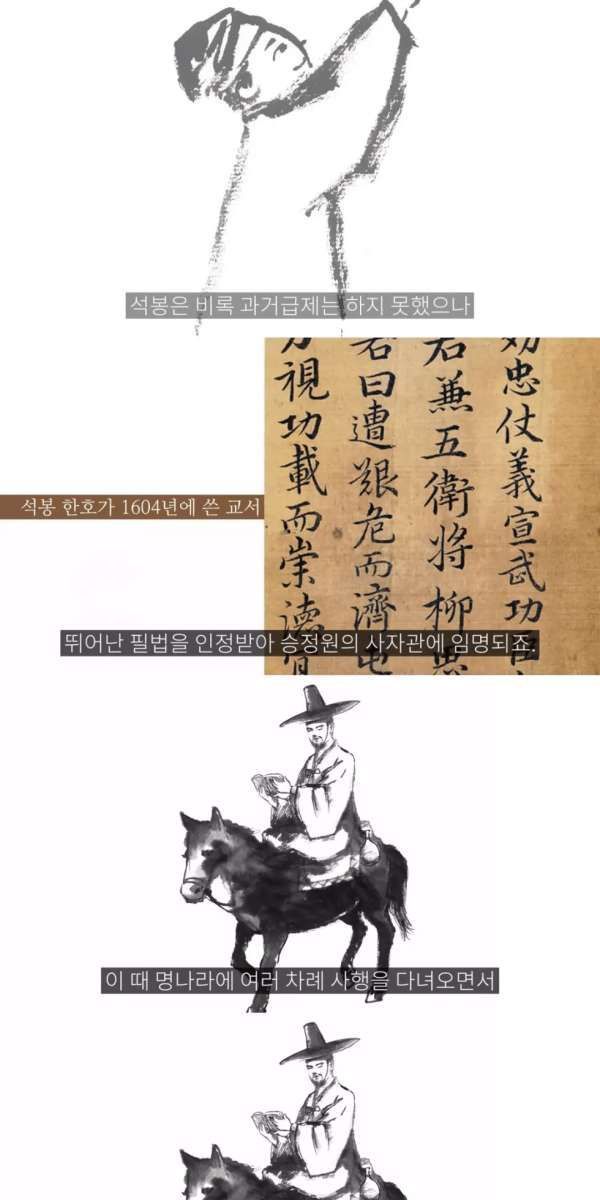 석봉은 비록 과거급제는 하지 못했으나
忠仗義宣武功
君兼五衛將柳思
若曰遭艱危而濟屯
視功載而崇德
석봉 한호가 1604년에 쓴 교서
뛰어난 필법을 인정받아 승정원의 사자관에 임명되죠.
이 때 명나라에 여러 차례 사행을 다녀오면서